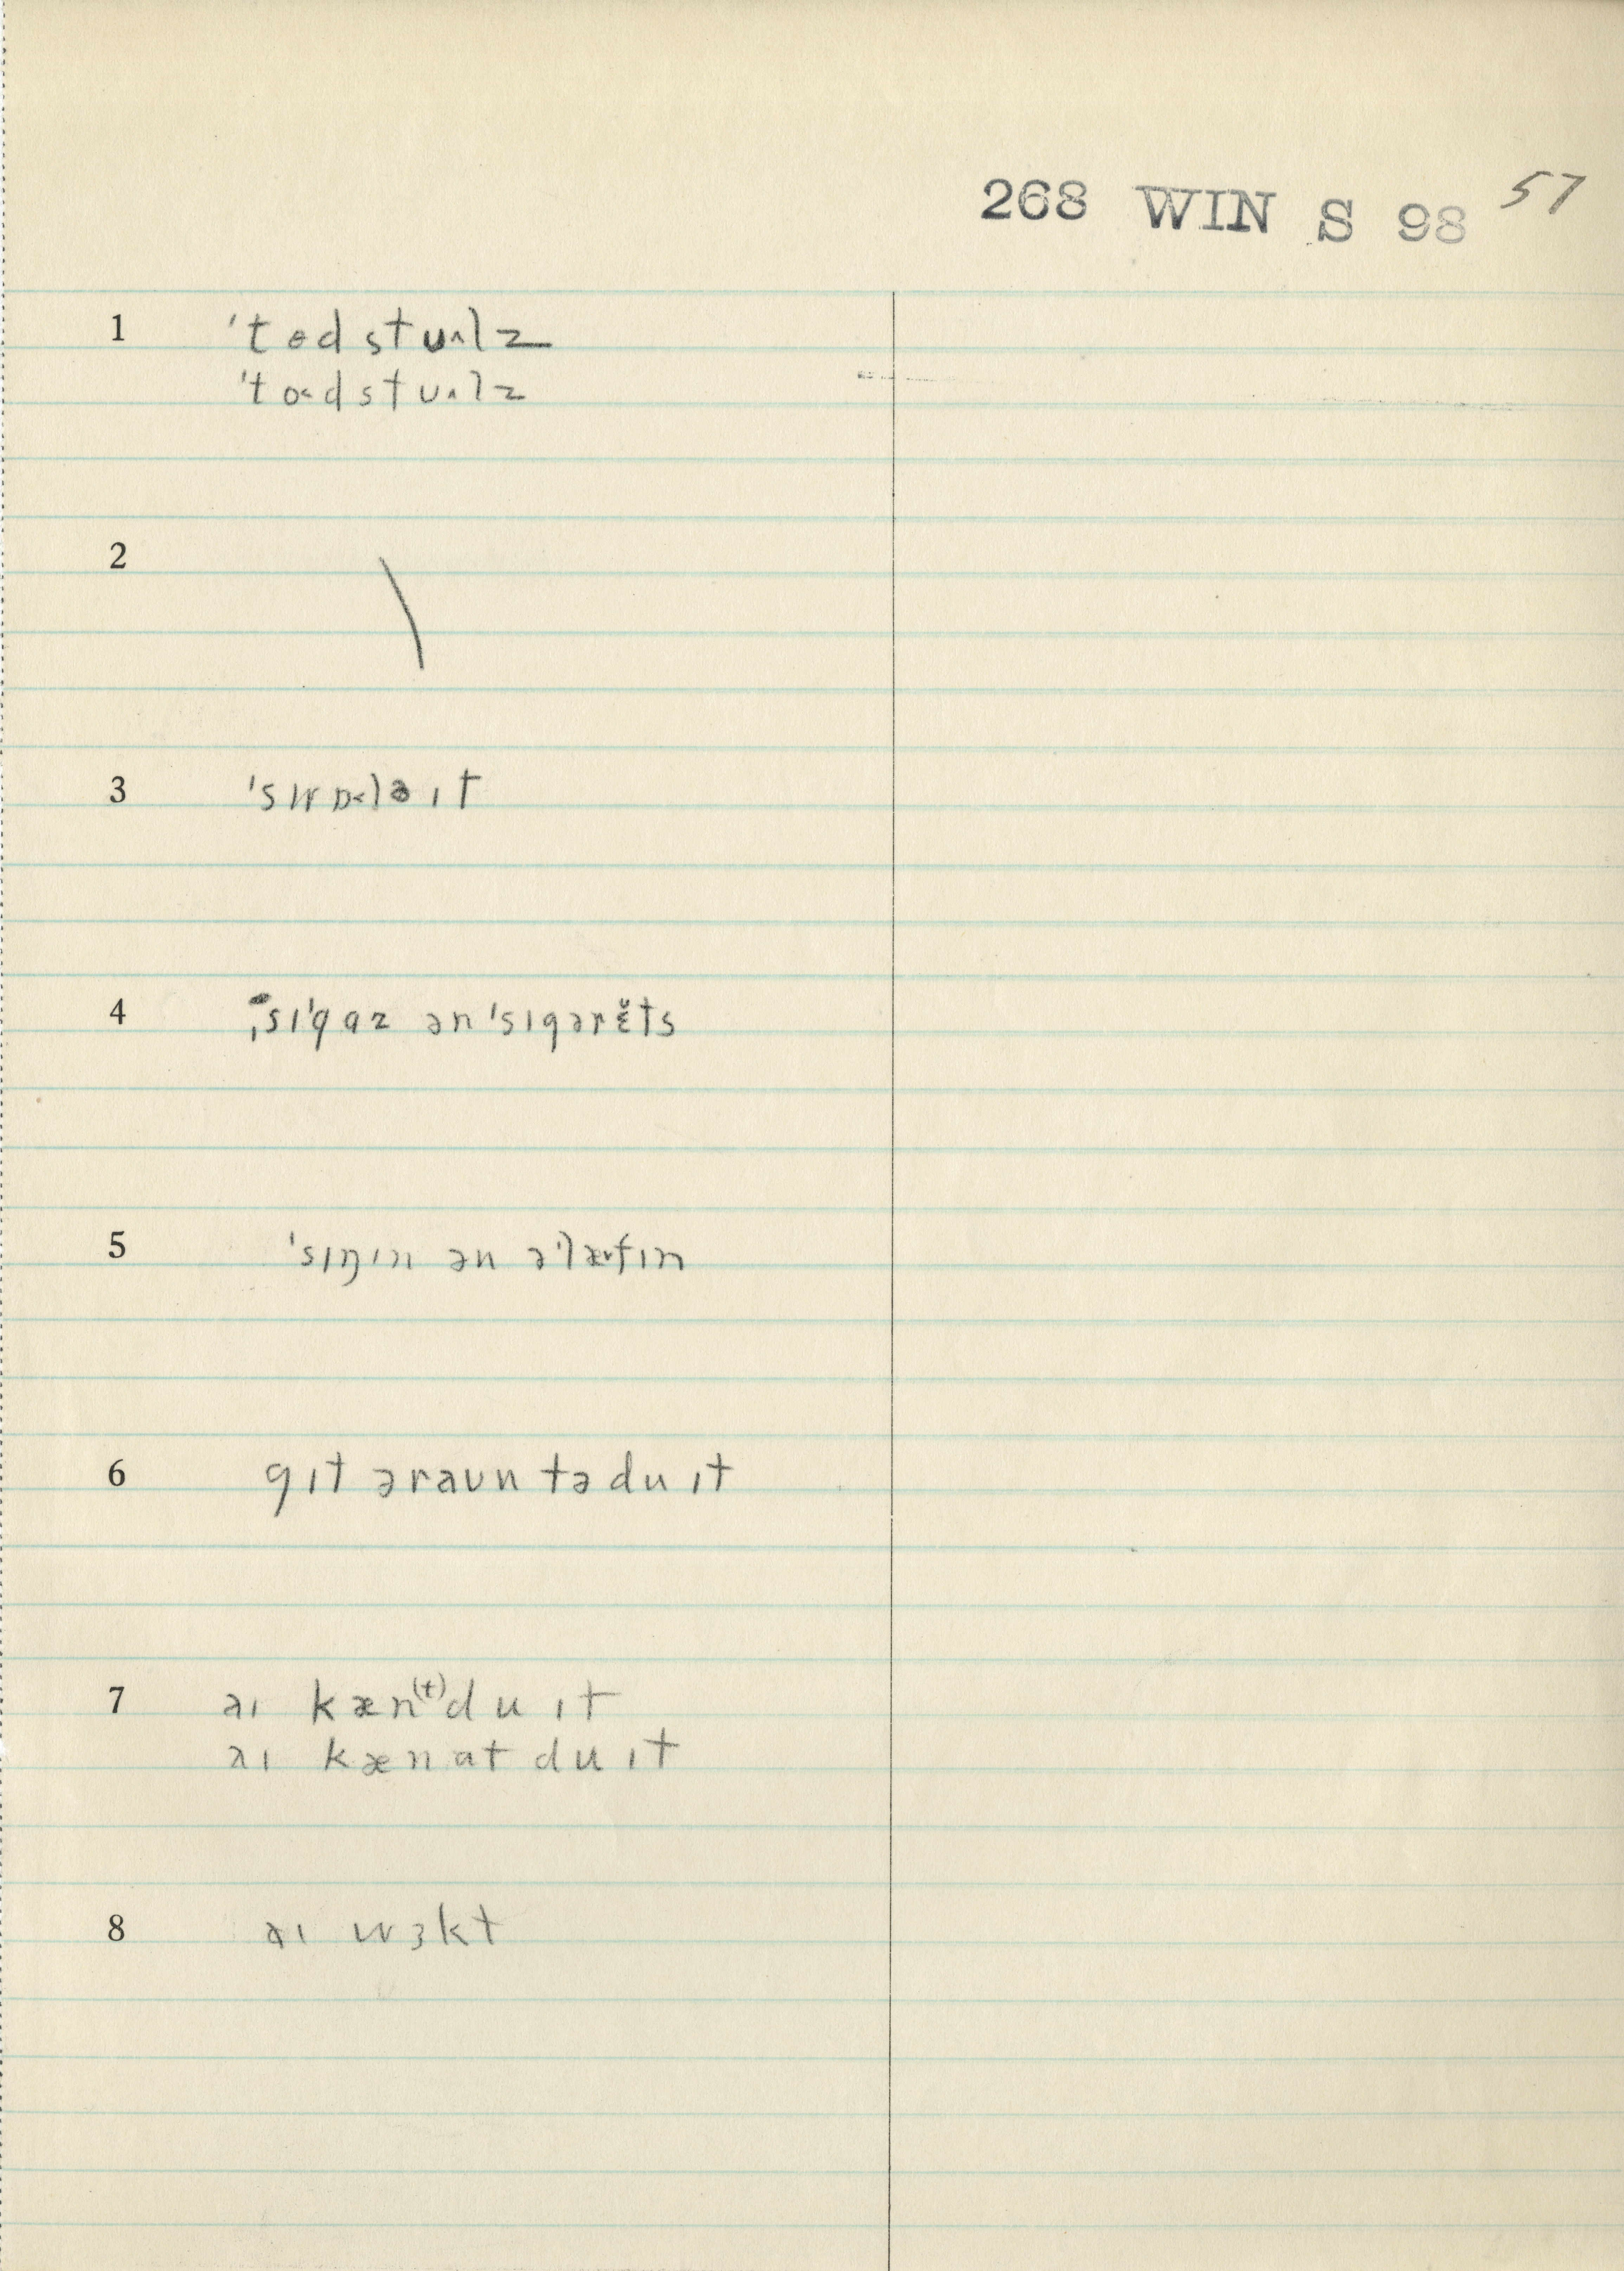 268 WIN S 98 57
1 ˈtɵdstu˄lz
ˈto˂dstu˄lz
2
3 ˈswɒ˂lə ɪt
4 ˌsɪˈgaz ən ˈsɪgərɛ̆ts
5 ˈsɪŋɪn ən əˈlæ˅fɪn
6 gɪt əraʊn tə du ɪt
7 əɪ kæn⁽ᵗ⁾ du ɪt
əɪ kænat du ɪt
8 əɪ wɜkt